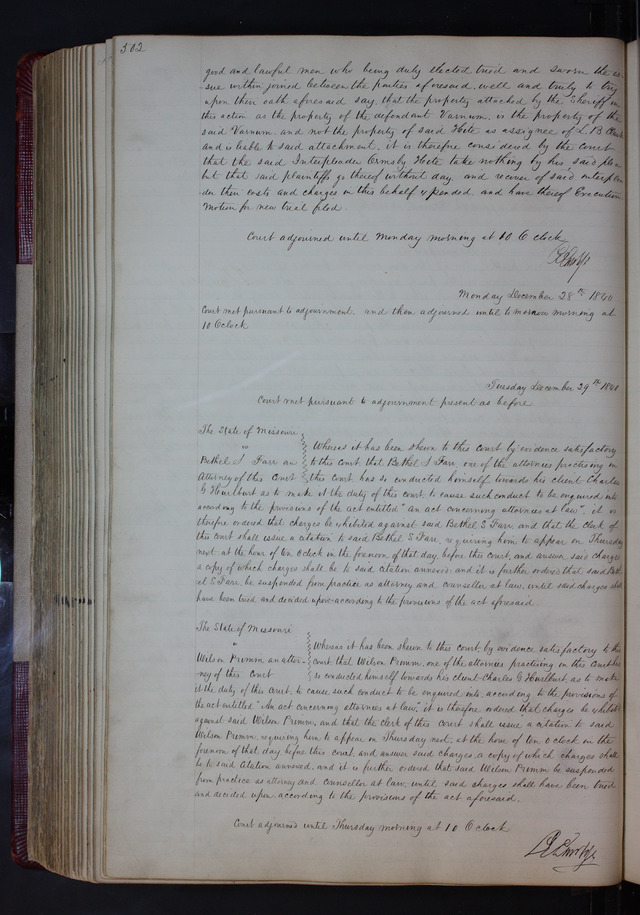 302
good and lawful men who being duly elected tried and sworn the is-
sue within joined between the parties aforesaid well and truly to try
upon their oath aforesaid say that the property attached by the Sheriff in
this action as the property of the defendant Varnum, is the property of the
said Varnum and not the property of said Hite as assignee of L B
and is liable to said attachment. it is therefore considered by the court
that the said Interpleader Ormsby Hite take nothing by his said plea
but that said plaintiffs go thereof without day and recover of said interplea
der their costs and charges in this behalf expended and have thereof Execution
Motion for new trial filed.
Court adjourned until Monday morning at 10 O clock
Monday December 28th 1840
Court met pursuant to adjournment. and then adjourned until tomorrow morning at
10 Oclock
Tuesday December 29th 1840
Court met pursuant to adjournment present as before
The State of Missouri
vs
Bethel S Farr an
Attorney of this Court
Whereas it has been shewn to this court by evidence satisfactory
to this court that Bethel S Farr one of the attornies practising in
this court has so conducted himself towards his client Charles
G Hourlburt as to make it the duty of this court to cause such conduct to be enquired into
according to the provisions of the act entitled "An act concerning attornies at law", it is
therefore ordered that charges be exhibited against said Bethel S Farr and that the clerk of
this court shall issue a citation to said Bethel S Farr, requiring him to appear on Thursday
next at the hour of ten Oclock in the forenoon of that day before this court, and answer said charges
a copy of which charges shall be to said citation annexed, and it is further ordered that said Beth
el S Farr be suspended from practice as attorney and counsellor at law, until said charges shall
have been tried and decided upon according to the provisions of the act aforesaid.
The State of Missouri
"
Wilson Primm an attor-
ney of this Court
Whereas it has been shewn to this court, by evidence satisfactory to this
court that Wilson Primm, one of the attornies practising in this court has
so conducted himself towards his client Charles G Hourlburt, as to make
it the duty of this court, to cause such conduct to be enquired into according to the provisions of
the act entitled "An act concerning attornies at law", it is therefore ordered that charges be exhibited
against said Wilson Primm, and that the clerk of this court shall issue a citation to said
Wilson Primm, requiring him to appear on Thursday next, at the hour of ten oclock in the
forenoon of that day before this court, and answer said charges, a copy of which charges shall
be to said citation annexed, and it is further ordered that said Wilson Primm be suspended
from practice as attorney and counsellor at law until said charges shall have been tried
and decided upon according to the provisions of the act aforesaid.
Court adjourned until Thursday morning at 10 Oclock